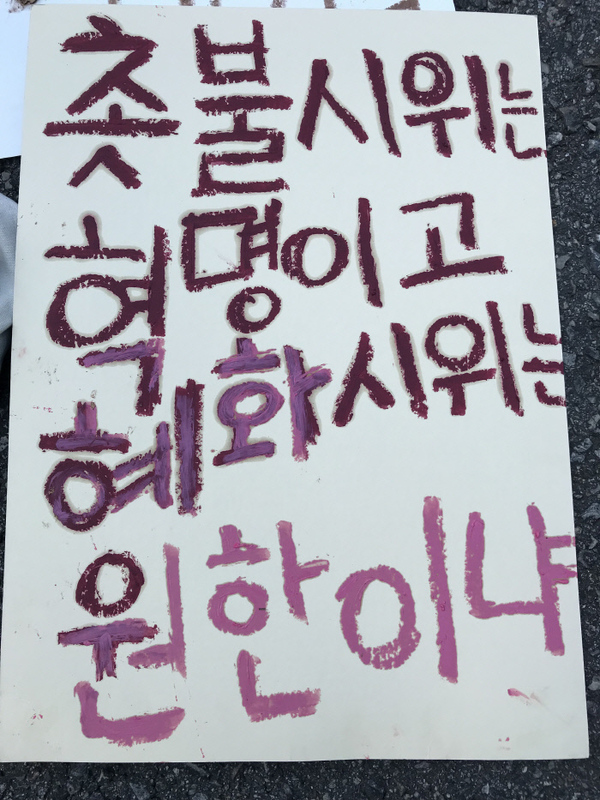 촛불시위는
혁명이고
혜화시위는
원한이냐